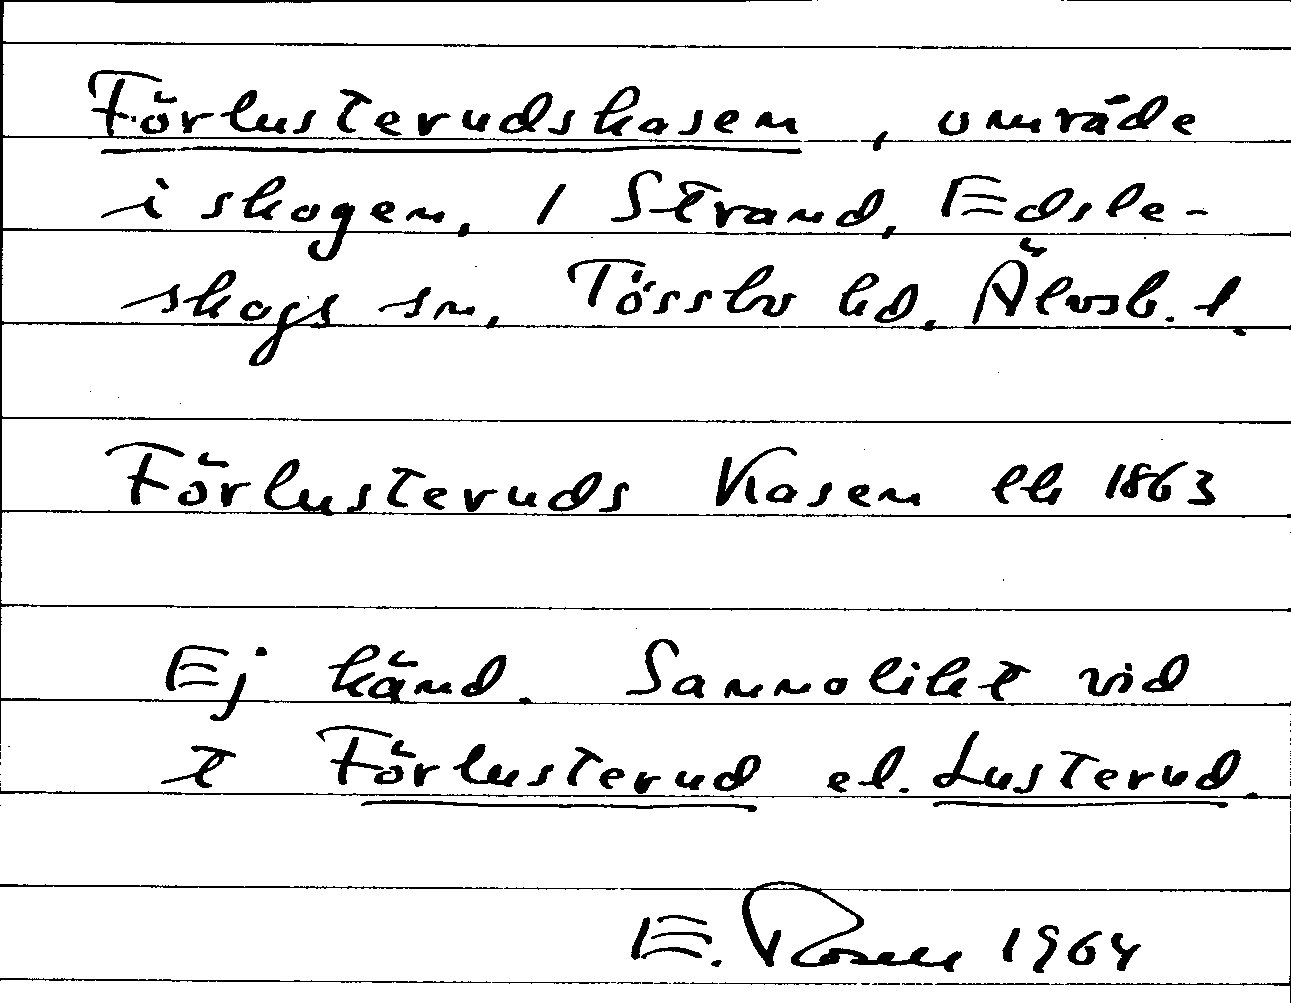 Förlusterudskasen, område
i skogen, 1 Strand, Edsle-
skogs sn, Tössbo hd, Älvsb. l.
Förlusteruds Kasen lk 1863
Ej känd. Sannolikt vid
t Förlusterud el. Lusterud.
E. Rosell 1964